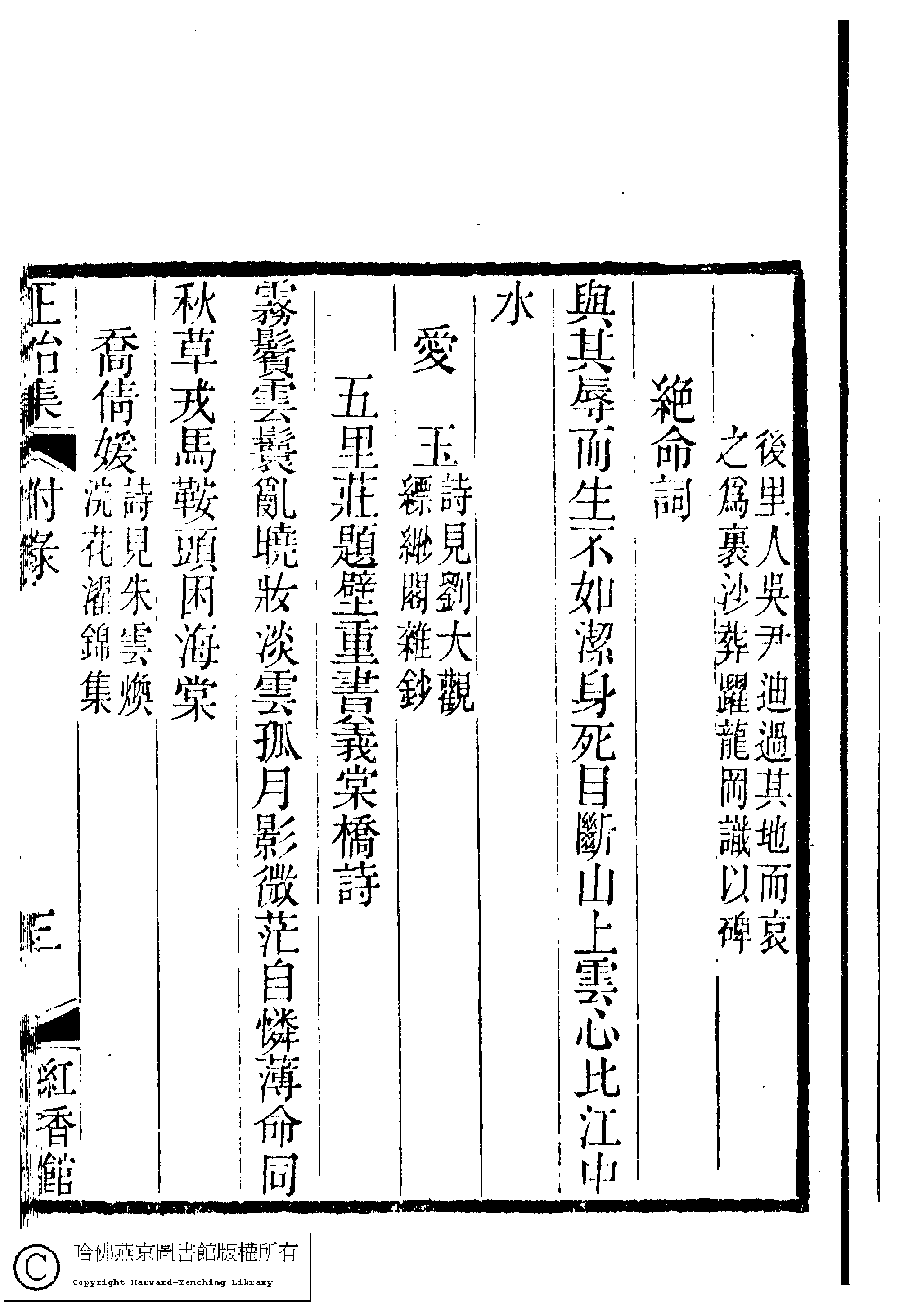 後里人吳尹迪過其地而哀
之爲裹沙葬躍龍岡識以碑
絶命詞
與其辱而生不如潔身死目斷山上雲心比江中
水
愛玉
詩見劉大觀
縹緲閣雜鈔
五里莊題壁重書義棠橋詩
霧鬢雲鬟亂曉妝淡雲孤月影微茫自憐薄命同
秋草戎馬鞍頭困海棠
喬倩媛
詩見朱雲煥
浣花濯錦集
正始集 附錄 三 紅香館
哈佛燕京圖書館版權所有
Copyright Harvard-Yenching Library